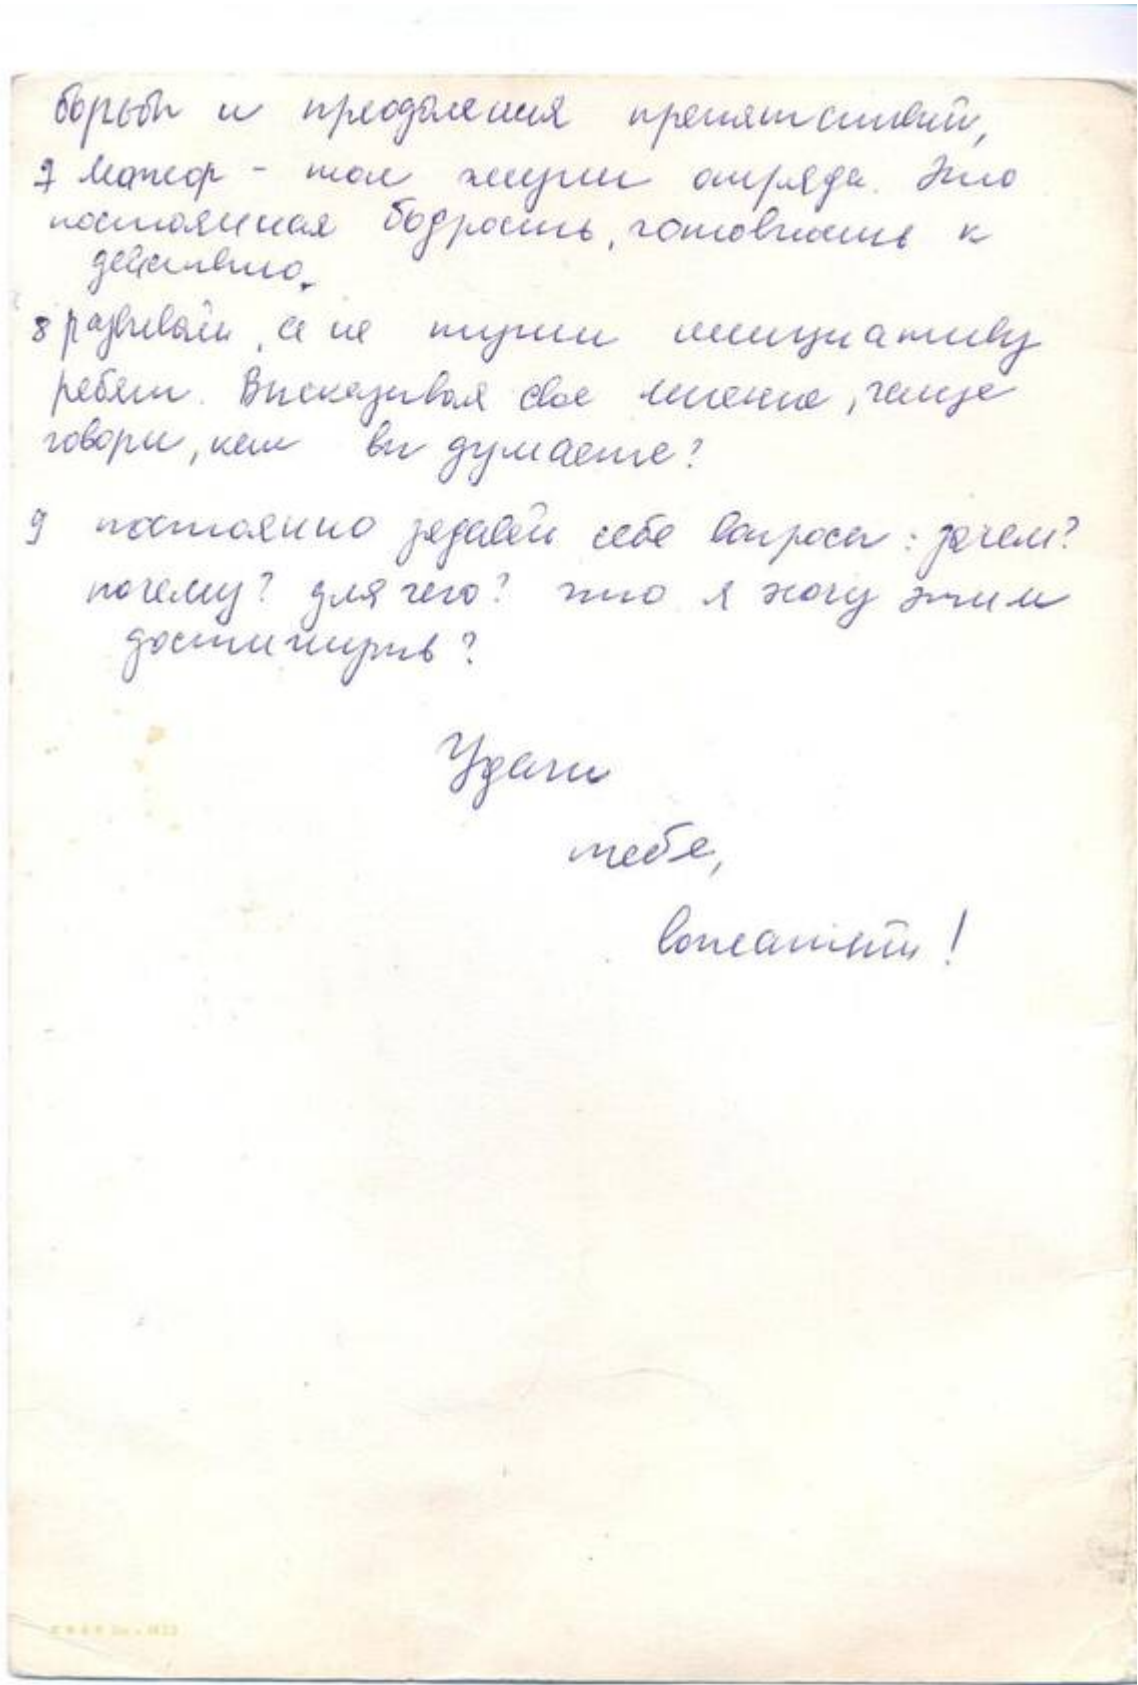 борьбы и преодоления препятствий,
7 Мажор - тон жизни отряда. Это
постоянная бодрость, готовность к
действию.
8 развивай, а не туши инициативу
ребят. Высказывая свое мнение, чаще
говори, как вы думаете?
9 постоянно задавай себе вопросы: зачем?
почему? для чего? что я хочу этим
достигнуть?
Удачи
тебе,
вожатый!